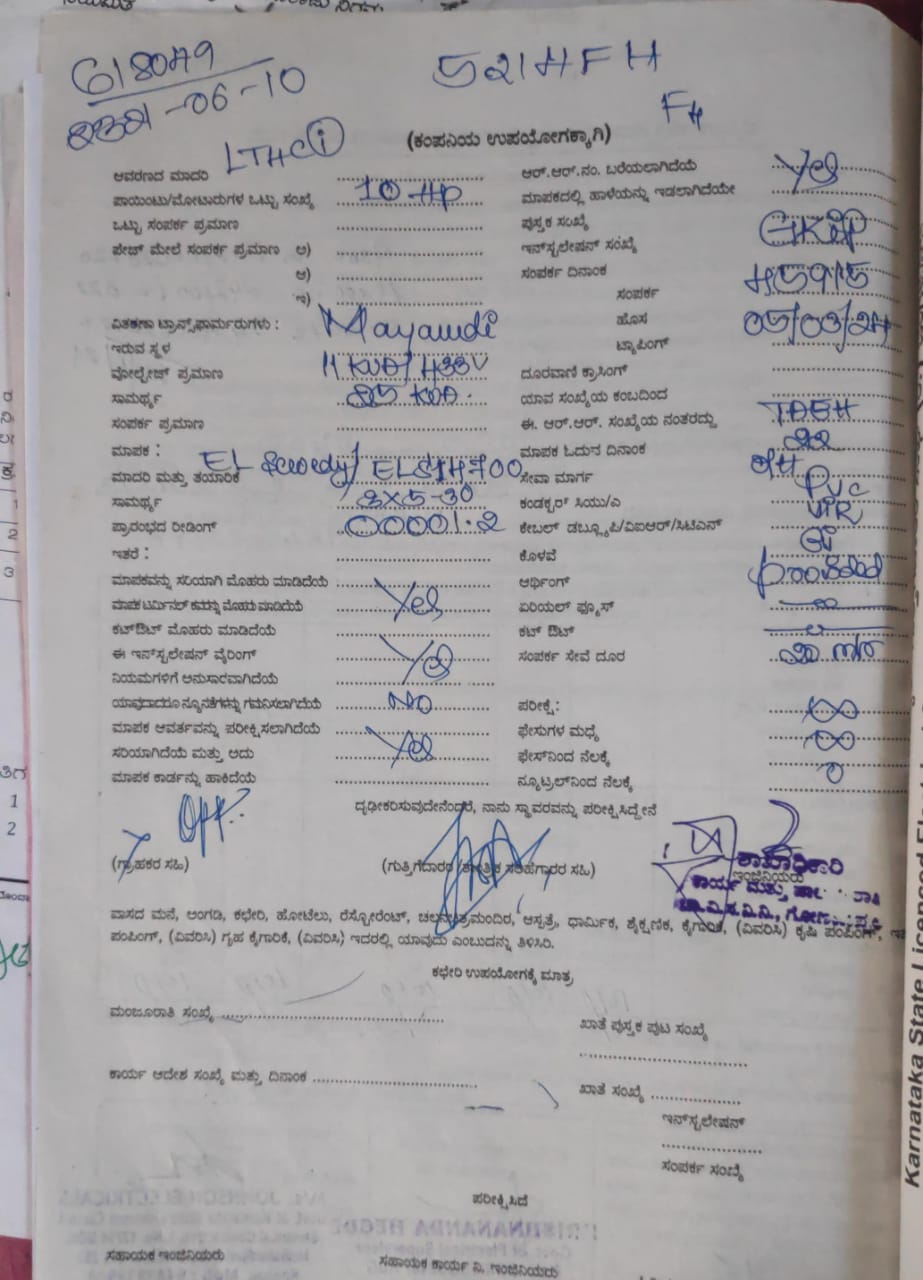 618049
521HFH
-06-10
LTHC(i)
(ಕಂಪನಿಯ ಉಪಯೋಗಕ್ಕಾಗಿ)
ಆವರಣದ ಮಾದರಿ
ಆರ್.ಆರ್.ನಂ. ಬರೆಯಲಾಗಿದೆಯೆ Yes
ಪಾಯಿಂಟು/ಮೋಟಾರುಗಳ ಒಟ್ಟು ಸಂಖ್ಯೆ 10 HP
ಮಾಪಕದಲ್ಲಿ ಹಾಳೆಯನ್ನು ಇಡಲಾಗಿದೆಯೇ
ಒಟ್ಟು ಸಂಪರ್ಕ ಪ್ರಮಾಣ
ಪುಸ್ತಕ ಸಂಖ್ಯೆ
ಪೇಚ್ ಮೇಲೆ ಸಂಪರ್ಕ ಪ್ರಮಾಣ ಅ)
ಇನ್‌ಸ್ಟಲೇಷನ್ ಸಂಖ್ಯೆ
ಆ)
ಸಂಪರ್ಕ ದಿನಾಂಕ
ಇ)
ಸಂಪರ್ಕ
ವಿತರಣಾ ಟ್ರಾನ್ಸ್‌ಫಾರ್ಮರುಗಳು :
ಹೊಸ 05/03/24
ಇರುವ ಸ್ಥಳ
ಟ್ಯಾಪಿಂಗ್
ವೋಲ್ಟೇಜ್ ಪ್ರಮಾಣ 11 KVA/433V
ದೂರವಾಣಿ ಕ್ರಾಸಿಂಗ್
ಸಾಮರ್ಥ್ಯ 25 KVA
ಯಾವ ಸಂಖ್ಯೆಯ ಕಂಬದಿಂದ
ಸಂಪರ್ಕ ಪ್ರಮಾಣ
ಈ. ಆರ್.ಆರ್. ಸಂಖ್ಯೆಯ ನಂತರದ್ದು
ಮಾಪಕ :
ಮಾಪಕ ಓದುನ ದಿನಾಂಕ 22
ಮಾದರಿ ಮತ್ತು ತಯಾರಿಕೆ
ಸೇವಾ ಮಾರ್ಗ OH
ಸಾಮರ್ಥ್ಯ 3X5-30
ಕಂಡಕ್ಟರ್ ಸಿಯು/ಎ PVC
ಪ್ರಾರಂಭದ ರೀಡಿಂಗ್ 00001.2
ಕೇಬಲ್ ಡಬ್ಲ್ಯೂಪಿ/ವಿಐಆರ್/ಸಿಟಿಎಸ್ VIR
ಇತರೆ :
ಕೊಳವೆ GI
ಮಾಪಕವನ್ನು ಸರಿಯಾಗಿ ಮೊಹರು ಮಾಡಿದೆಯೆ
ಆರ್ಥಿಂಗ್ provided
ಮಾಪಕ ಟರ್ಮಿನಲ್ ಕವರನ್ನು ಮೊಹರು ಮಾಡಿದೆಯೆ Yes
ಏರಿಯಲ್ ಫ್ಯೂಸ್
ಕಟ್‌ಔಟ್ ಮೊಹರು ಮಾಡಿದೆಯೆ
ಕಟ್ ಔಟ್
ಈ ಇನ್‌ಸ್ಟಲೇಷನ್ ವೈರಿಂಗ್ Yes
ಸಂಪರ್ಕ ಸೇವೆ ದೂರ
ನಿಯಮಗಳಿಗೆ ಅನುಸಾರವಾಗಿದೆಯೆ
ಯಾವುದಾದರೂ ನ್ಯೂನತೆಗಳನ್ನು ಗಮನಿಸಲಾಗಿದೆಯೆ NO
ಪರೀಕ್ಷೆ: ∞
ಮಾಪಕ ಆವರ್ತವನ್ನು ಪರೀಕ್ಷಿಸಲಾಗಿದೆಯೆ
ಫೇಸುಗಳ ಮಧ್ಯೆ ∞
ಸರಿಯಾಗಿದೆಯೆ ಮತ್ತು ಅದು Yes
ಫೇಸ್‌ನಿಂದ ನೆಲಕ್ಕೆ
ಮಾಪಕ ಕಾರ್ಡನ್ನು ಹಾಕಿದೆಯೆ
ನ್ಯೂಟ್ರಲ್‌ನಿಂದ ನೆಲಕ್ಕೆ 0
ದೃಢೀಕರಿಸುವುದೇನೆಂದರೆ, ನಾನು ಸ್ಥಾವರವನ್ನು ಪರೀಕ್ಷಿಸಿದ್ದೇನೆ
(ಗ್ರಾಹಕರ ಸಹಿ)
(ಗುತ್ತಿಗೆದಾರರ /ತಾಂತ್ರಿಕ ಸಲಹೆಗಾರರ ಸಹಿ)
ಶಾಖಾಧಿಕಾರಿ
ಇಂಜಿನಿಯರು
ವಾಸದ ಮನೆ, ಅಂಗಡಿ, ಕಛೇರಿ, ಹೋಟೆಲು, ರೆಸ್ಟೋರೆಂಟ್, ಚಲನಚಿತ್ರಮಂದಿರ, ಆಸ್ಪತ್ರೆ, ಧಾರ್ಮಿಕ, ಶೈಕ್ಷಣಿಕ, ಕೈಗಾರಿಕೆ, (ವಿವರಿಸಿ) ಕೃಷಿ ಪಂಪಿಂಗ್,
ಪಂಪಿಂಗ್, (ವಿವರಿಸಿ) ಗೃಹ ಕೈಗಾರಿಕೆ, (ವಿವರಿಸಿ) ಇದರಲ್ಲಿ ಯಾವುದು ಎಂಬುದನ್ನು ತಿಳಿಸಿರಿ.
ಕಛೇರಿ ಉಪಯೋಗಕ್ಕೆ ಮಾತ್ರ
ಮಂಜೂರಾತಿ ಸಂಖ್ಯೆ
ಖಾತೆ ಪುಸ್ತಕ ಪುಟ ಸಂಖ್ಯೆ
ಕಾರ್ಯ ಆದೇಶ ಸಂಖ್ಯೆ ಮತ್ತು ದಿನಾಂಕ
ಖಾತೆ ಸಂಖ್ಯೆ
ಇನ್‌ಸ್ಟಲೇಷನ್
ಸಂಪರ್ಕ ಸಂಖ್ಯೆ
ಪರೀಕ್ಷಿಸಿದೆ
ಸಹಾಯಕ ಇಂಜಿನಿಯರು
ಸಹಾಯಕ ಕಾರ್ಯ ನಿ. ಇಂಜಿನಿಯರು
Karnataka State Licensed